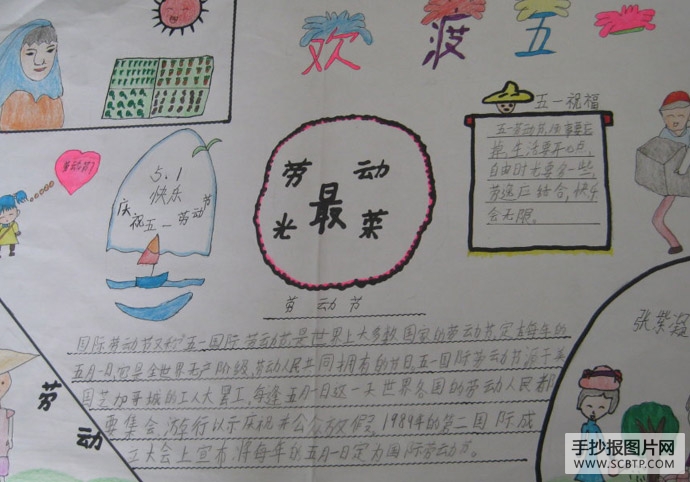 欢 疲 五
五一祝福
五一劳动节,往事要忘
掉,生活要开心点,
自由时光要多一些,
劳逸应结合,快乐
会无限。
5.1
快乐
庆祝五一劳动节
劳动
最
光荣
劳动节
国际劳动节又称"五一国际劳动节,是世界上大多数国家的劳动节,定在每年的
五月一日,它是全世界无产阶级,劳动人民共同拥有的节日,五一国际劳动节源于美
国芝加哥城的工人大罢工,每逢五月一日这一天世界各国的劳动人民都
要集会,游行以示庆祝并公众放假,1989年的第二国际成
立大会上宣布:将每年的五月一日定为国际劳动节。
劳动
手抄报图片网
WWW.SCBTP.COM